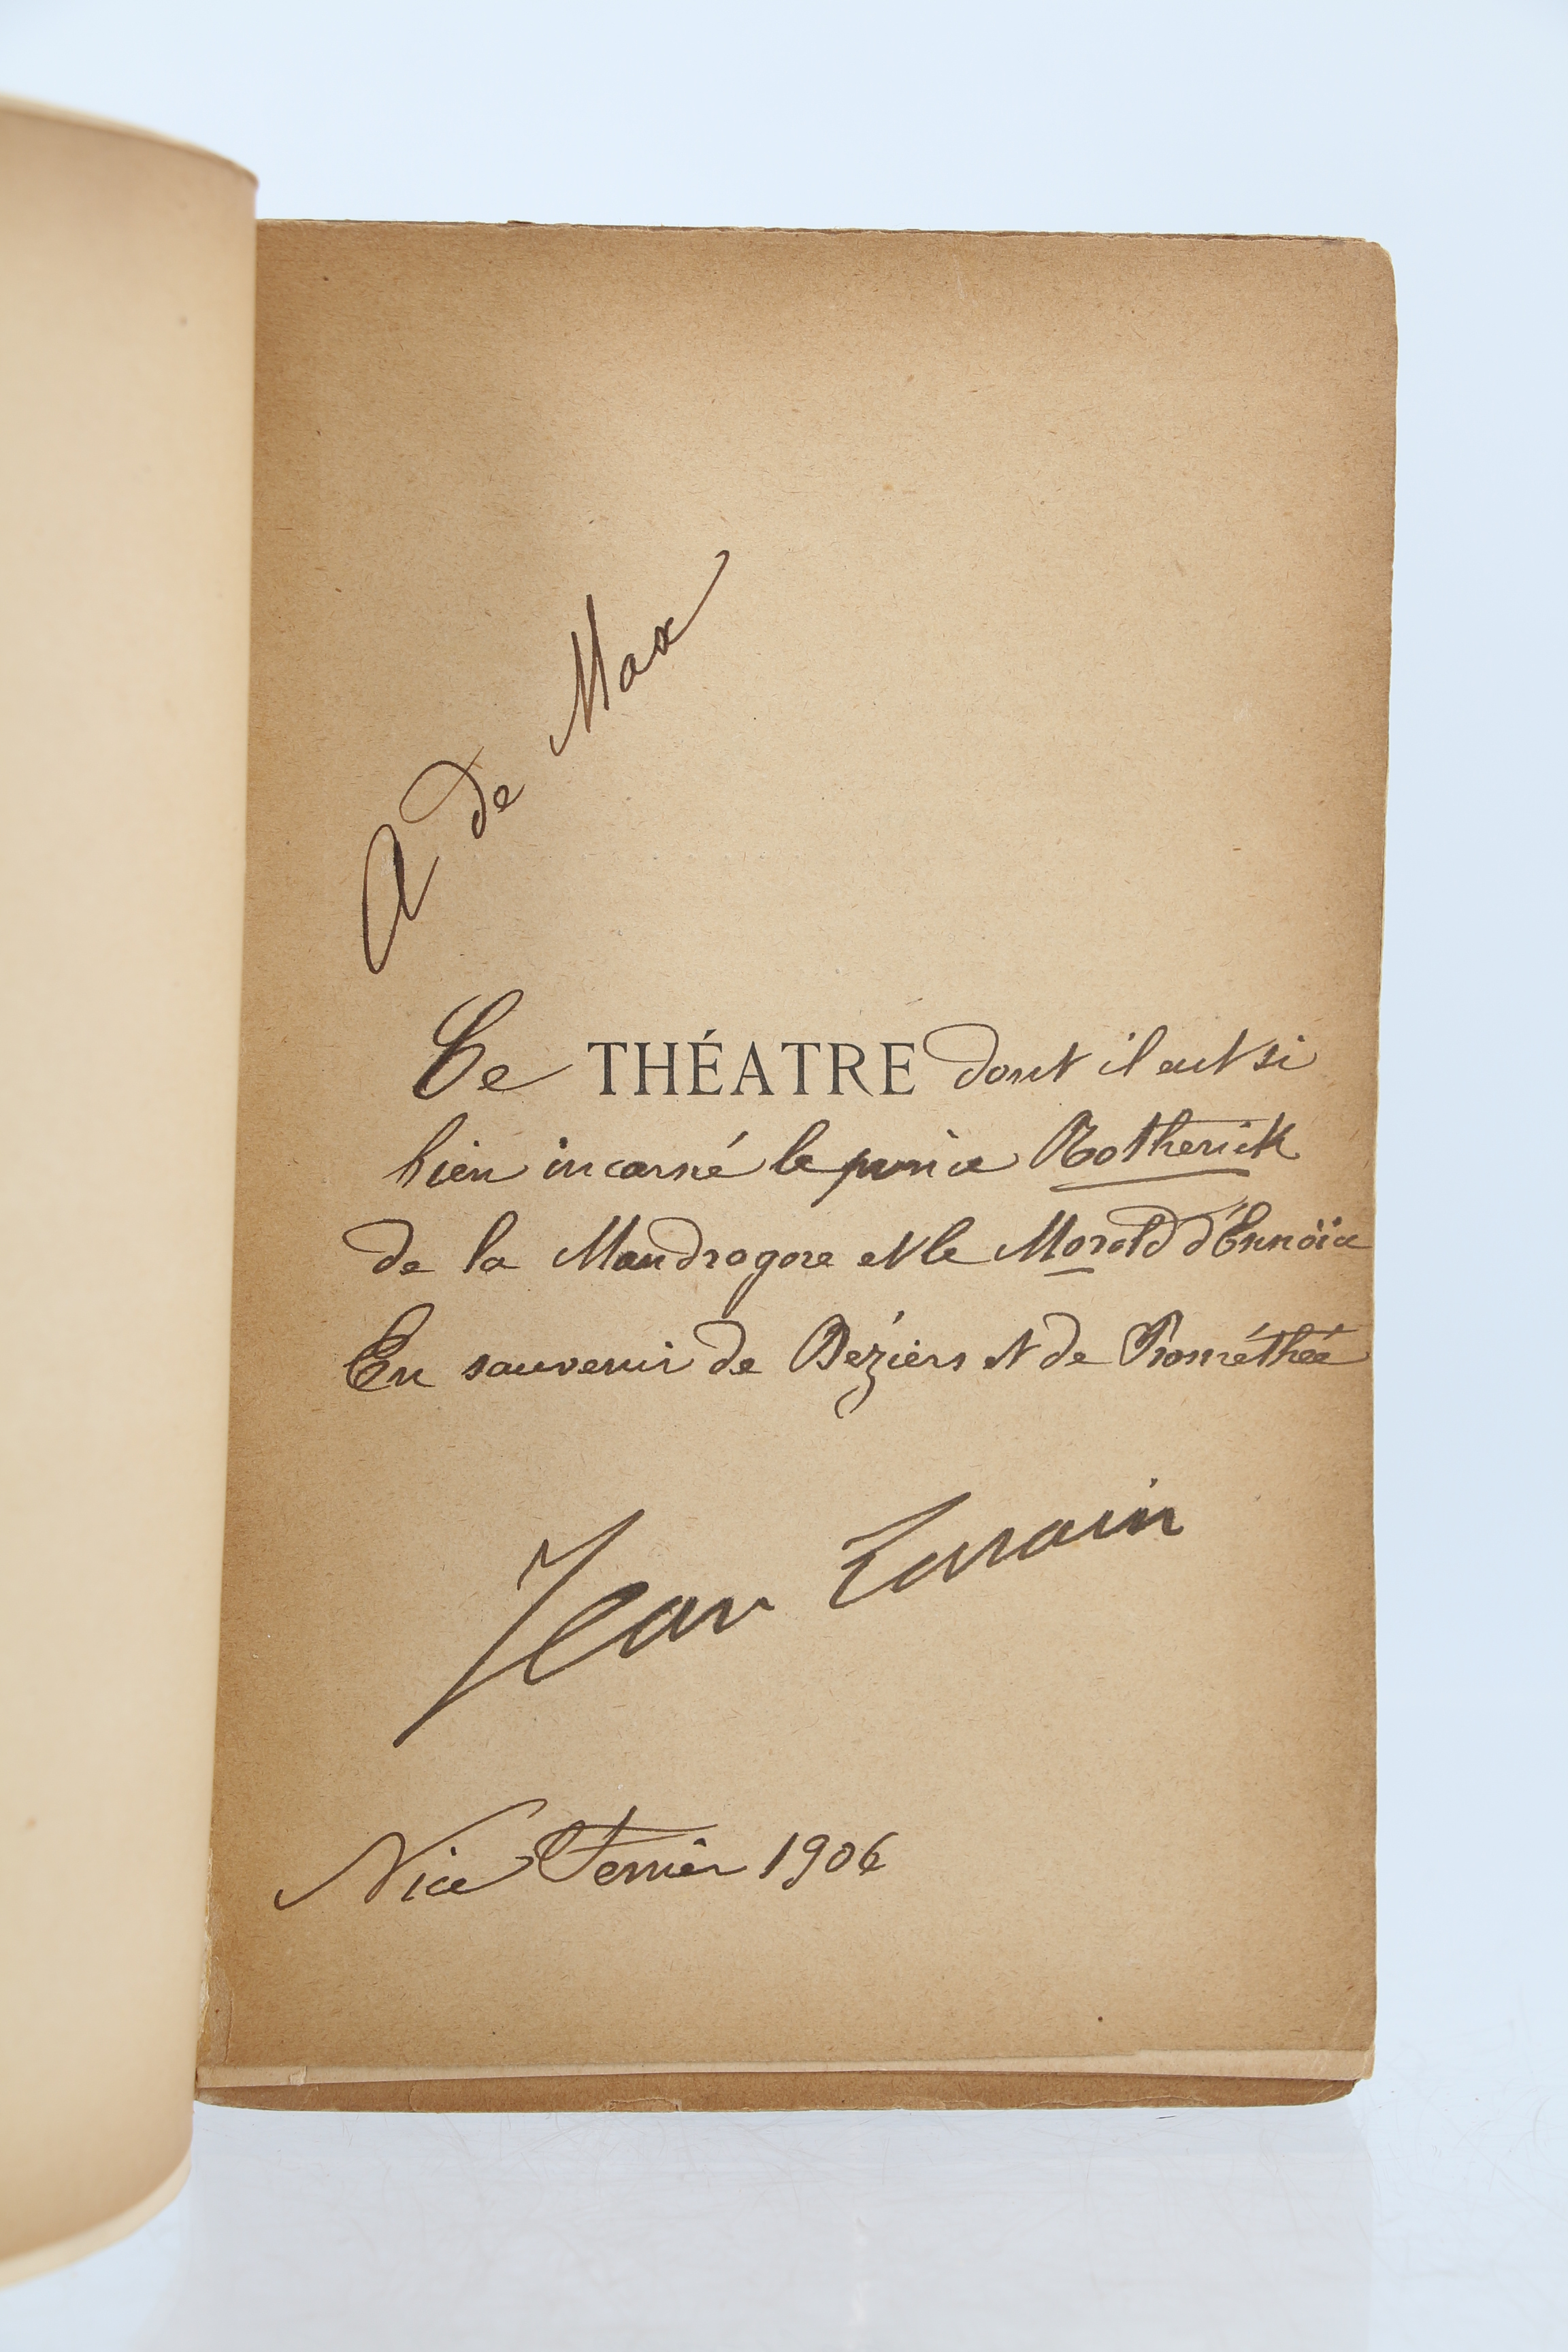 A de Max
Ce THÉATRE dont il eut si
bien incarné le prince Rotherick
de la Mandragore et le Morold d'Ennoïa
En souvenir de Béziers et de Prométhée
Jean Lorrain
Nice Fevrier 1906